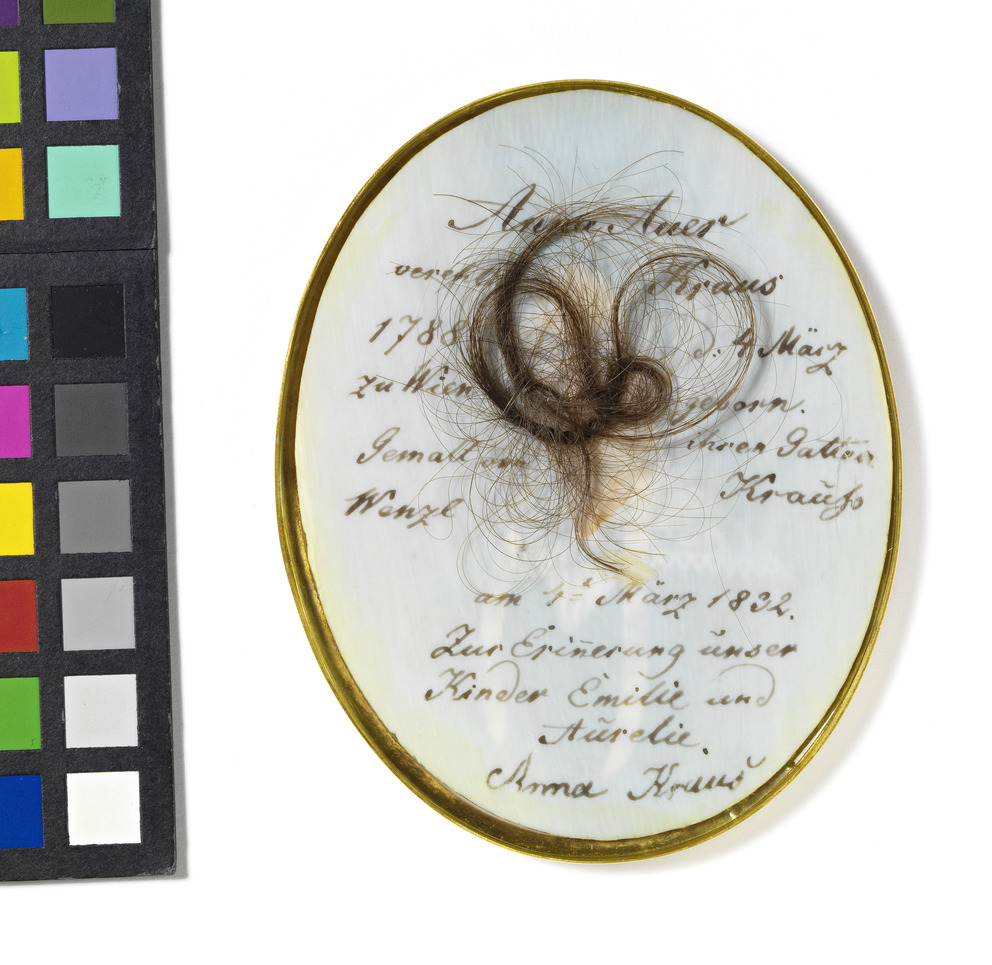 Anna Auer
Kraus
1788 d. 4 März
zu Wien geborn.
Gemalt von ihren Gatten
Wenzl Krauß
am 4t März 1832.
Zur Erin̄erung unser
Kinder Emilie und
Aurelie.
Anna Kraus